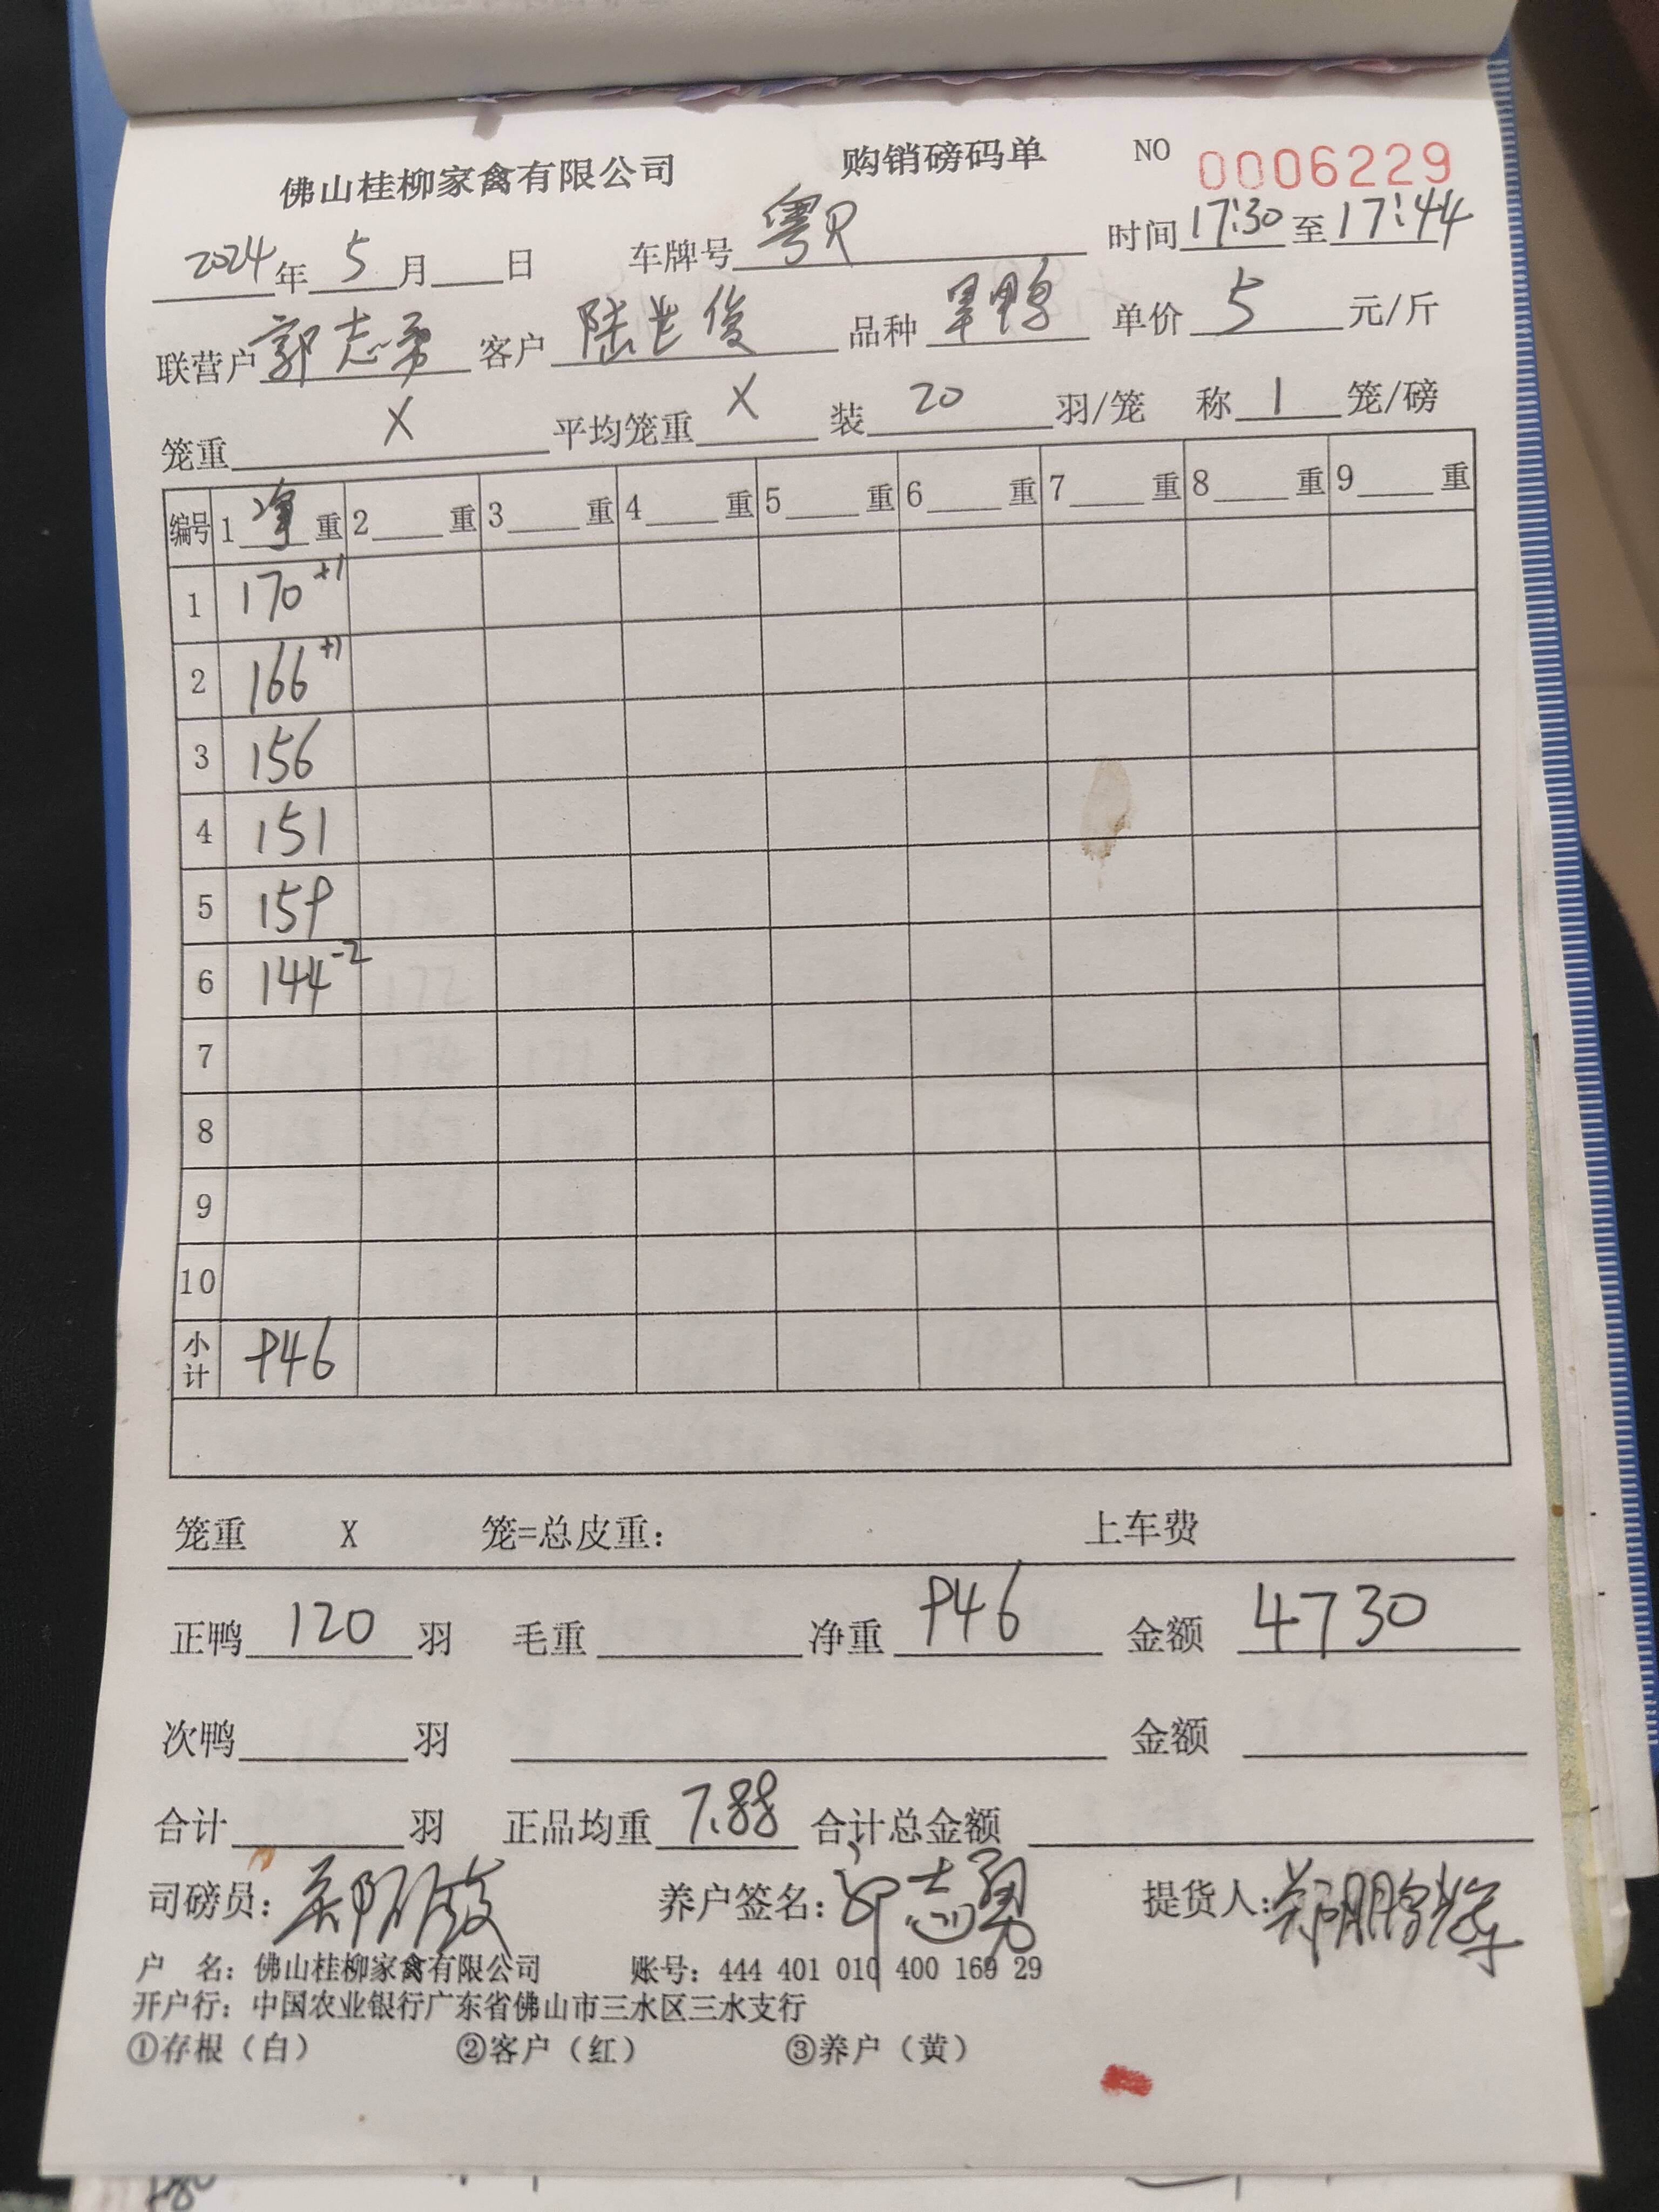 佛山桂柳家禽有限公司 购销磅码单 NO 0006229
2024年5月 日 车牌号 粤R 时间 17:30 至 17:44
联营户 郭志勇 客户 陆世俊 品种 旱鸭 单价 5 元/斤
笼重 X 平均笼重 X 装 20 羽/笼 称 1 笼/磅
编号 1 净 重 2 重 3 重 4 重 5 重 6 重 7 重 8 重 9 重
1 170 +1
2 166 +1
3 156
4 151
5 159
6 144 -2
7
8
9
10
小计 946
笼重 X 笼=总皮重: 上车费
正鸭 120 羽 毛重 净重 946 金额 4730
次鸭 羽 金额
合计 羽 正品均重 7.88 合计总金额
司磅员: 养户签名: 郭志勇 提货人:
户 名: 佛山桂柳家禽有限公司 账号: 444 401 010 400 169 29
开户行: 中国农业银行广东省佛山市三水区三水支行
①存根(白) ②客户(红) ③养户(黄)